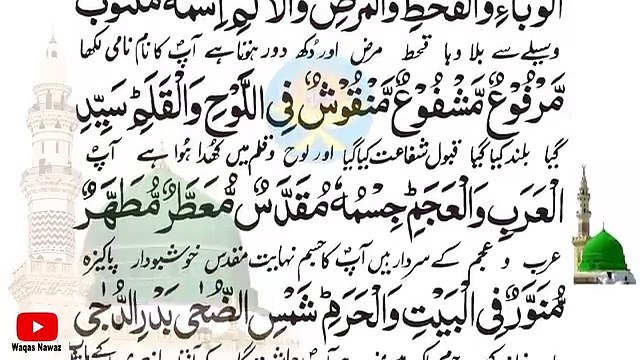 الْوَبَاءِ وَالْقَحْطِ وَالْمَرَضِ وَالْاَلَمِ اِسْمُهٗ مَكْتُوْبٌ
وسیلے سے بلا وبا قحط مرض اور دُکھ دور ہوتا ہے آپؐ کا نام نامی لکھا
مَّرْفُوْعٌ مَّشْفُوْعٌ مَّنْقُوْشٌ فِى اللَّوْحِ وَالْقَلَمِ سَيِّدِ
گیا بلند کیا گیا قبول شفاعت کیا گیا اور لوح و قلم میں کھُدا ہُوا ہے آپؐ
الْعَرَبِ وَالْعَجَمِ جِسْمُهٗ مُقَدَّسٌ مُّعَطَّرٌ مُّطَهَّرٌ
عرب و عجم کے سردار ہیں آپؐ کا جسم نہایت مقدس خوشبودار پاکیزہ
مُّنَوَّرٌ فِى الْبَيْتِ وَالْحَرَمِ شَمْسِ الضُّحٰى بَدْرِ الدُّجٰى
Waqas Nawaz